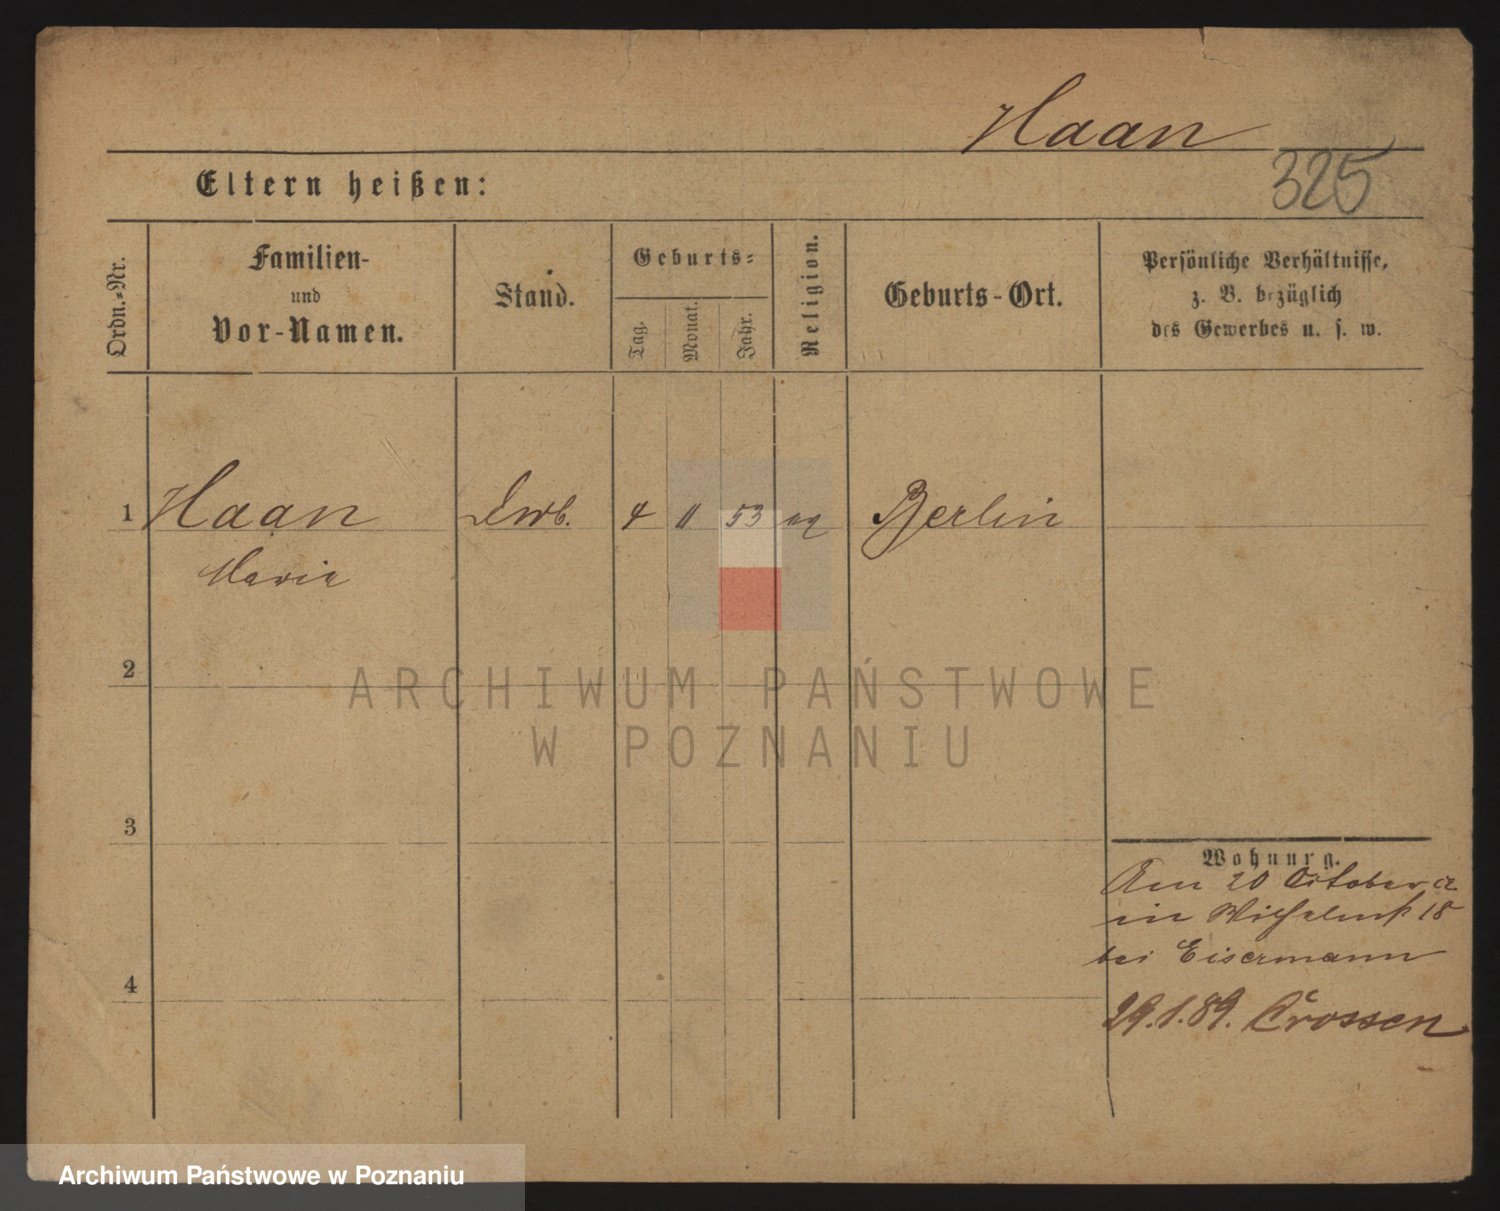 Haan
325
Eltern heißen:
Ordn.=Nr.
Familien-
und
Vor-Namen.
Stand.
Geburts=
Tag.
Monat.
Jahr.
Religion.
Geburts-Ort.
Persönliche Verhältnisse,
z. B. bezüglich
des Gewerbes u. s. w.
1 Haan 4 11 53 Berlin
Maria
2
ARCHIWUM PAŃSTWOWE
W POZNANIU
3
Wohnung.
20 October
18
bei Eisermann
4
29.1.89. Crossen
Archiwum Państwowe w Poznaniu